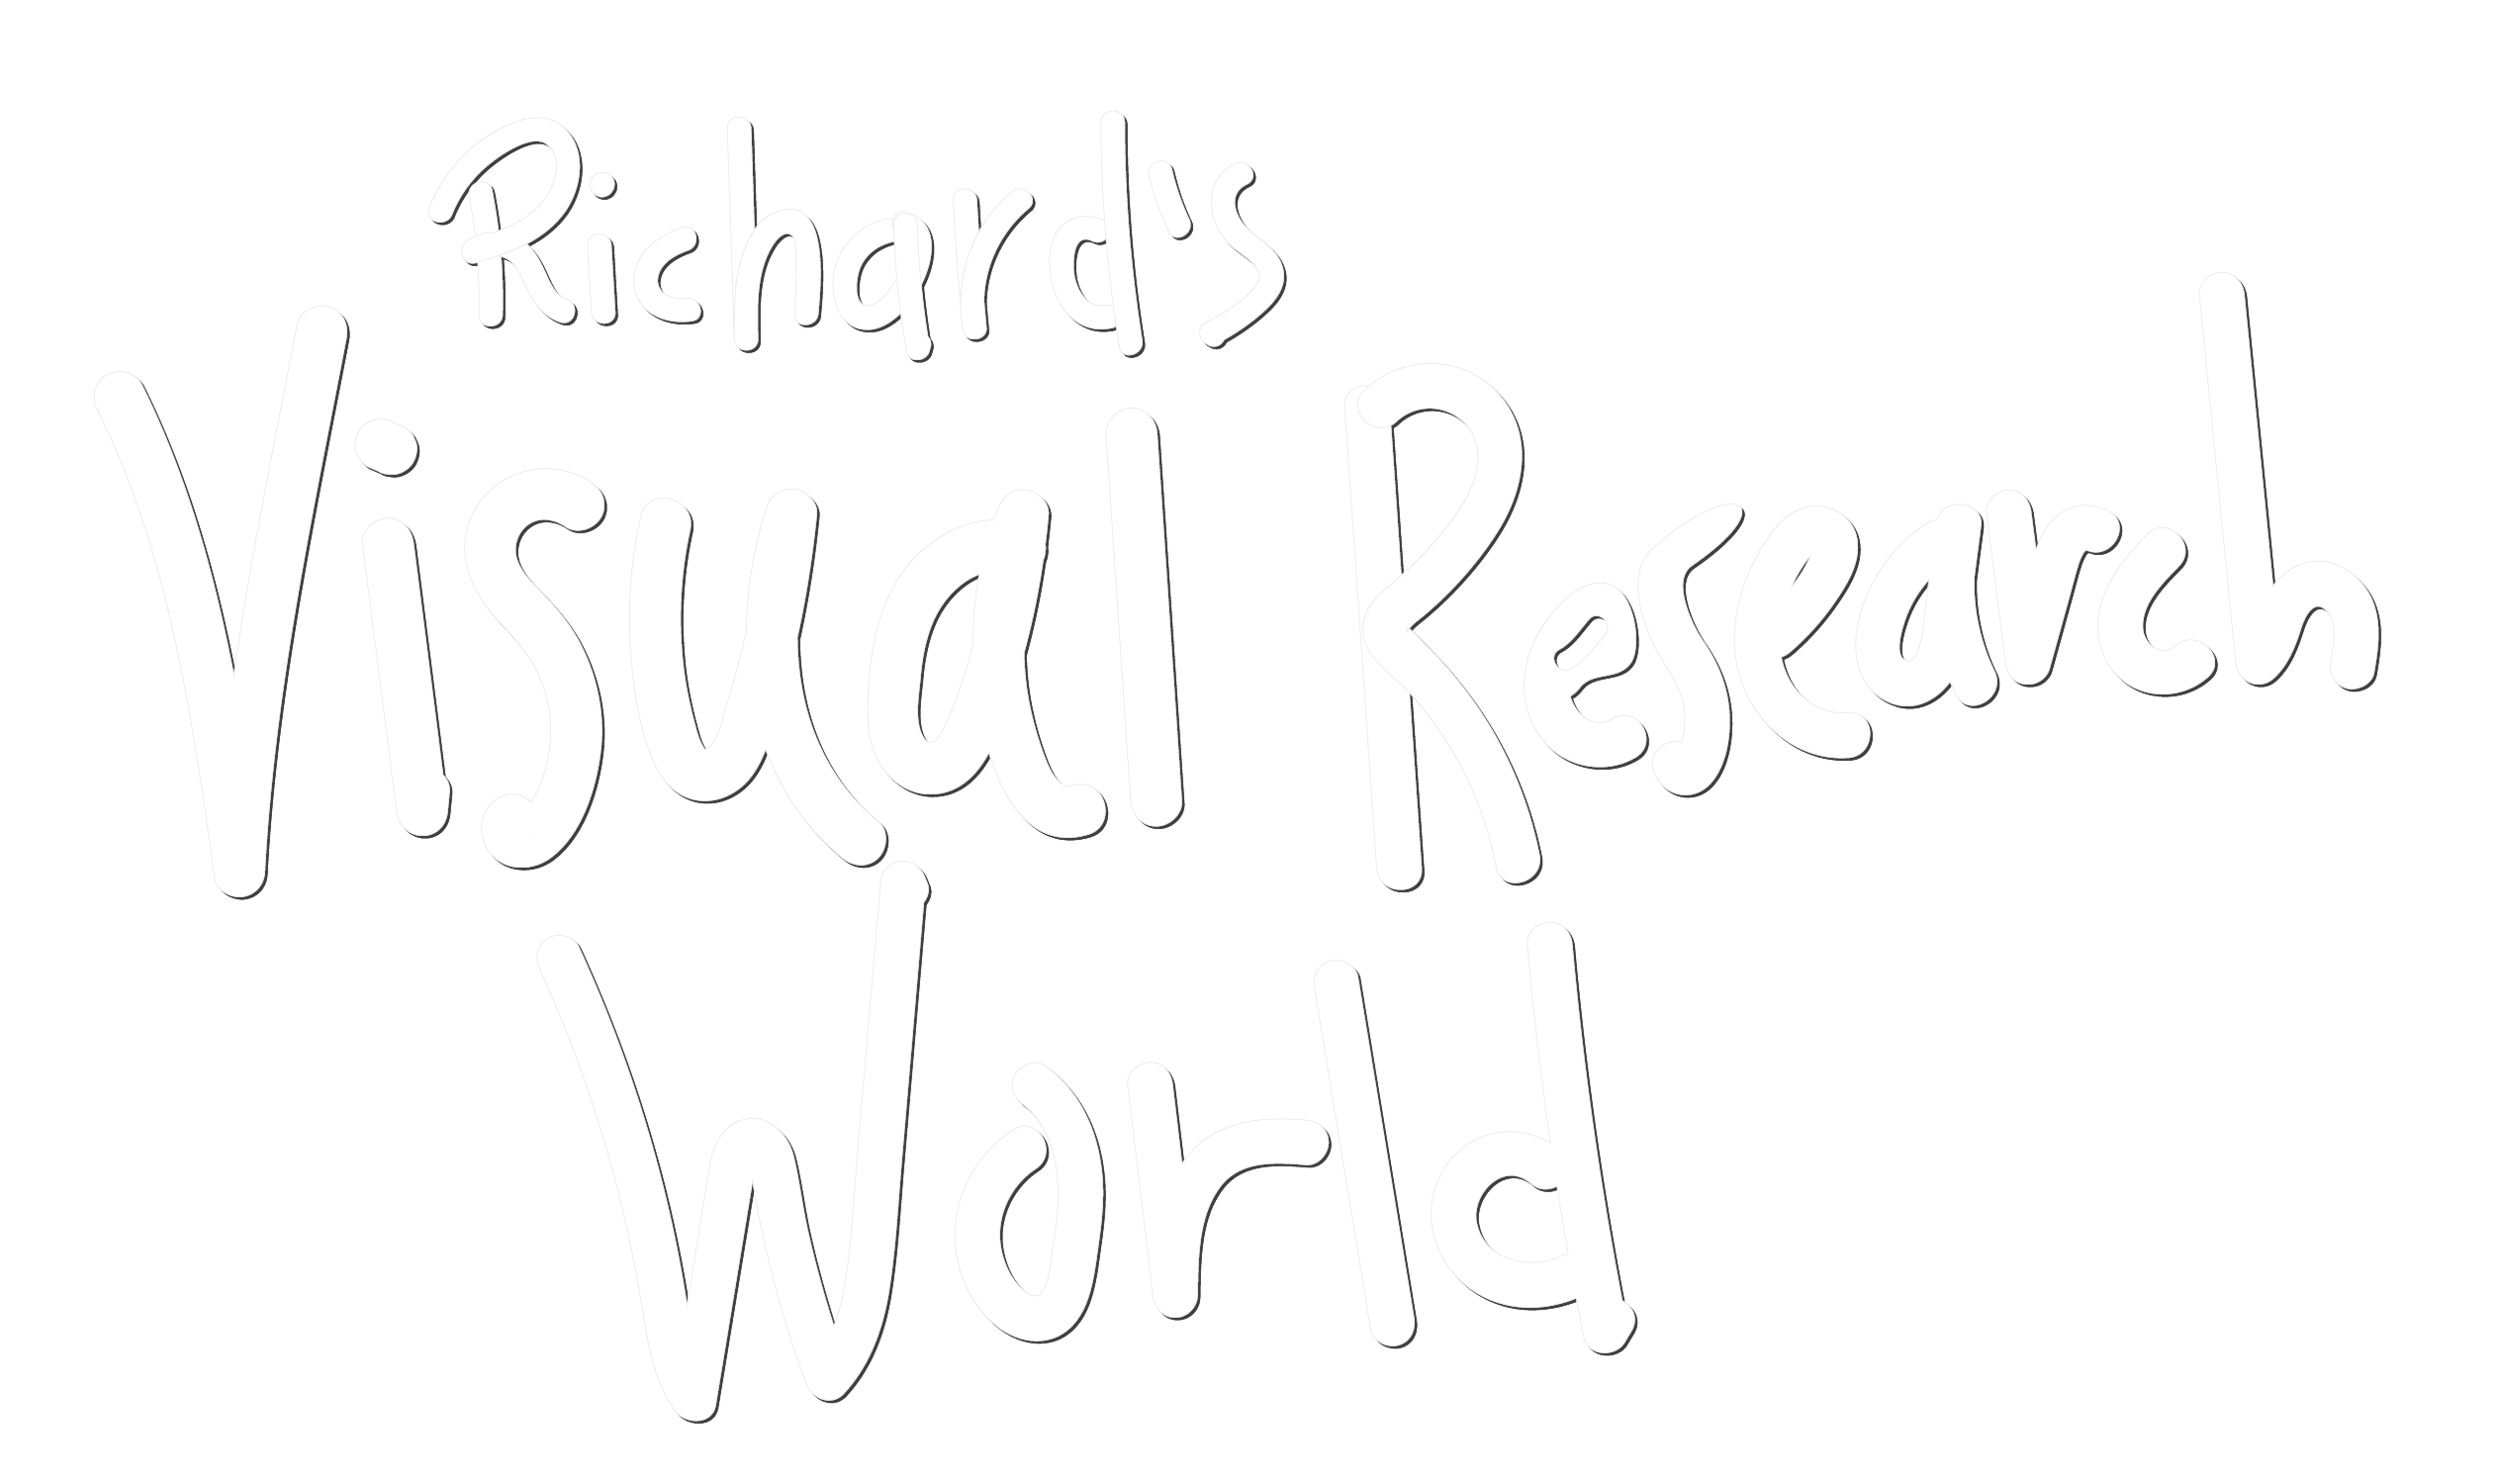 Richard's
Visual Research
World